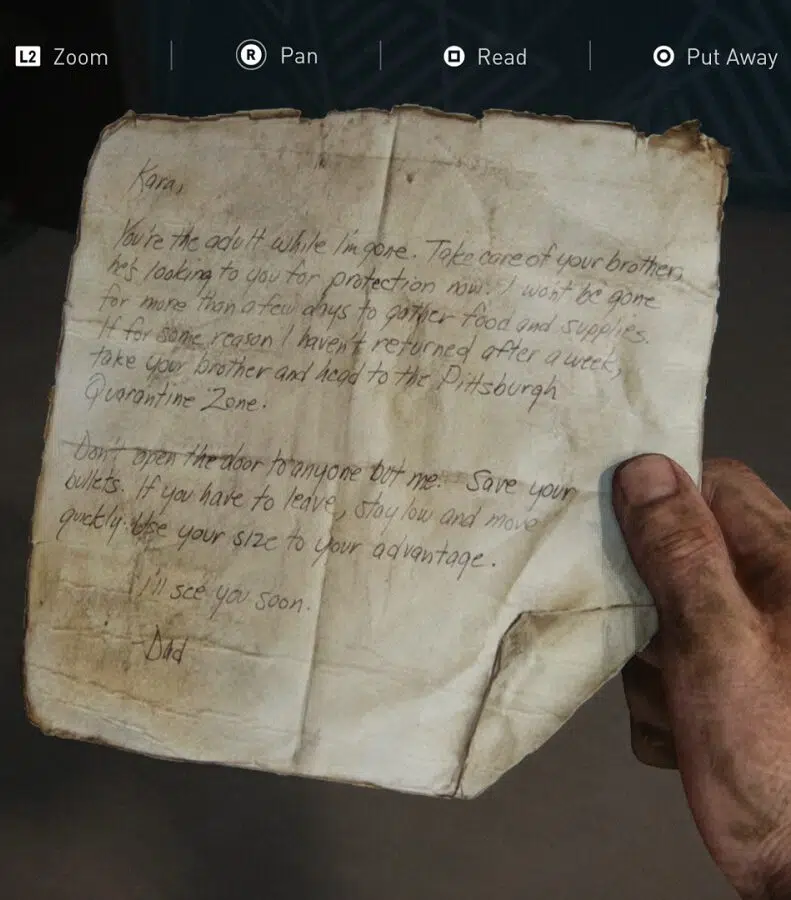 L2 Zoom R Pan Read Put Away
Kara,
You're the adult while I'm gone. Take care of your brother,
he's looking to you for protection now. I won't be gone
for more than a few days to gather food and supplies.
If for some reason I haven't returned after a week,
take your brother and head to the Pittsburgh
Quarantine Zone.
Don't open the door to anyone but me. Save your
bullets. If you have to leave, stay low and move
quickly. Use your size to your advantage.
I'll see you soon.
-Dad